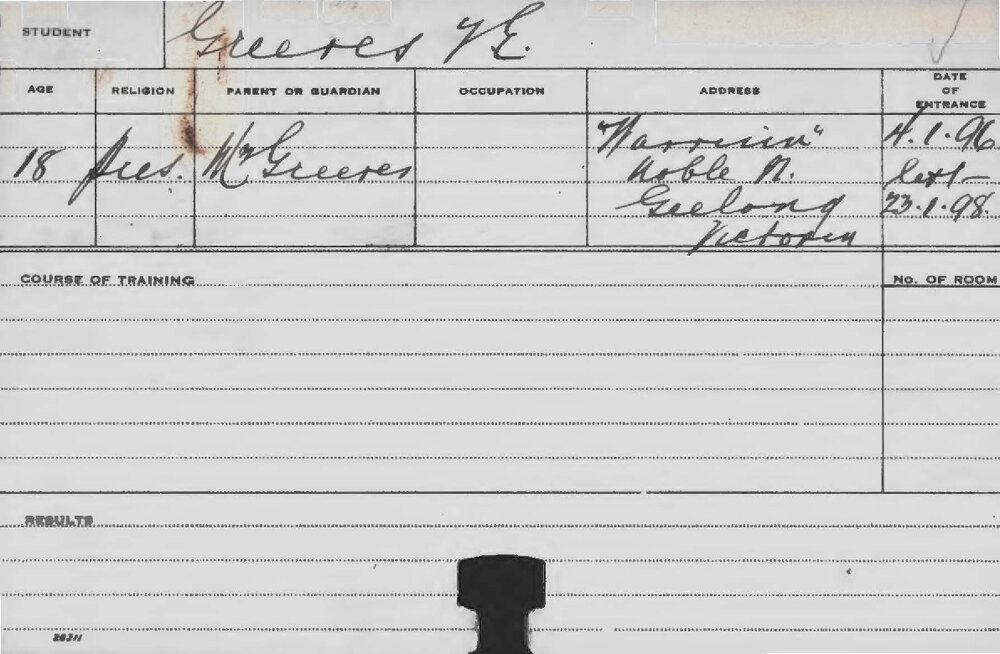 STUDENT Greeves
AGE RELIGION PARENT OR GUARDIAN OCCUPATION ADDRESS DATE OF ENTRANCE
18 Pres. Mr Greeves
Noble
Geelong
Victoria
4.1.96
left
23.1.98.
COURSE OF TRAINING No. OF ROOM
RESULTS